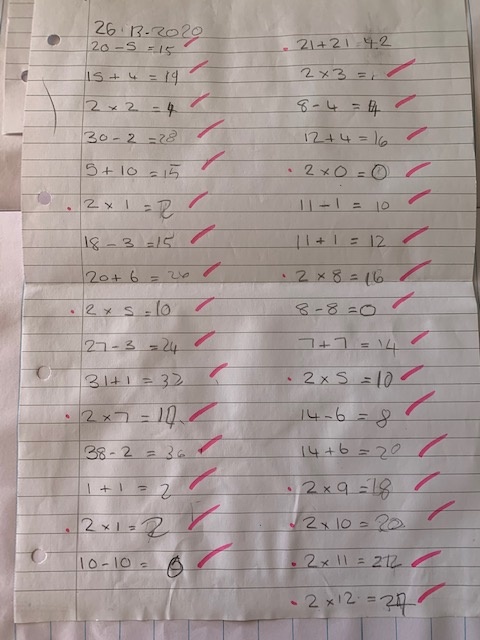 26.12.2020
20 - 5 = 15
15 + 4 = 19
2 × 2 = 4
30 - 2 = 28
5 + 10 = 15
2 × 1 = 2
18 - 3 = 15
20 + 6 = 26
2 × 5 = 10
27 - 3 = 24
31 + 1 = 32
2 × 7 =
38 - 2 = 36
1 + 1 = 2
2 × 1 = 2
10 - 10 = 0
21 + 21 = 42
2 × 3 =
8 - 4 = 4
12 + 4 = 16
2 × 0 = 0
11 - 1 = 10
11 + 1 = 12
2 × 8 = 16
8 - 8 = 0
7 + 7 = 14
2 × 5 = 10
14 - 6 = 8
14 + 6 = 20
2 × 9 = 18
2 × 10 = 20
2 × 11 =
2 × 12 =